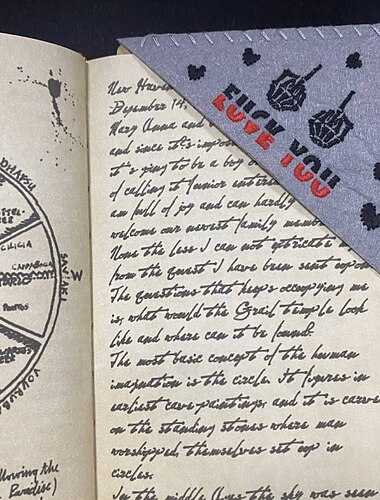 FUCK YOU
LOVE YOU
New Haven
December 14,
Mary Anna and
and since it's impos
it's going to be a boy o
of calling it Junior enterta
am full of joy and can hardly
welcome our newest family member
None the less I can not extricate m
from the quest I have been sent upon
The questions that keeps occupying me
is, what would the Grail temple look
like and where can it be found?
The most basic concept of the human
imagination is the circle. It figures in
earliest cave paintings, and it is carve
on the standing stones where man
worshipped, themselves set up in
circles.
In the middle ages the sky was seen
CILICIA
CAPPADOCIA
PONTUS
W.
llowing the
Paradise)